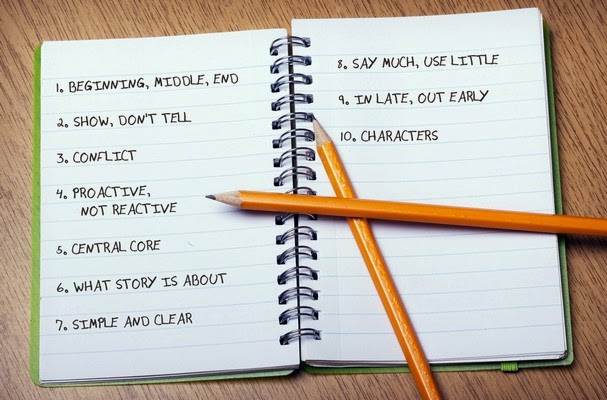 1. BEGINNING, MIDDLE, END
2. SHOW, DON'T TELL
3. CONFLICT
4. PROACTIVE,
NOT REACTIVE
5. CENTRAL CORE
6. WHAT STORY IS ABOUT
7. SIMPLE AND CLEAR
8. SAY MUCH, USE LITTLE
9. IN LATE, OUT EARLY
10. CHARACTERS